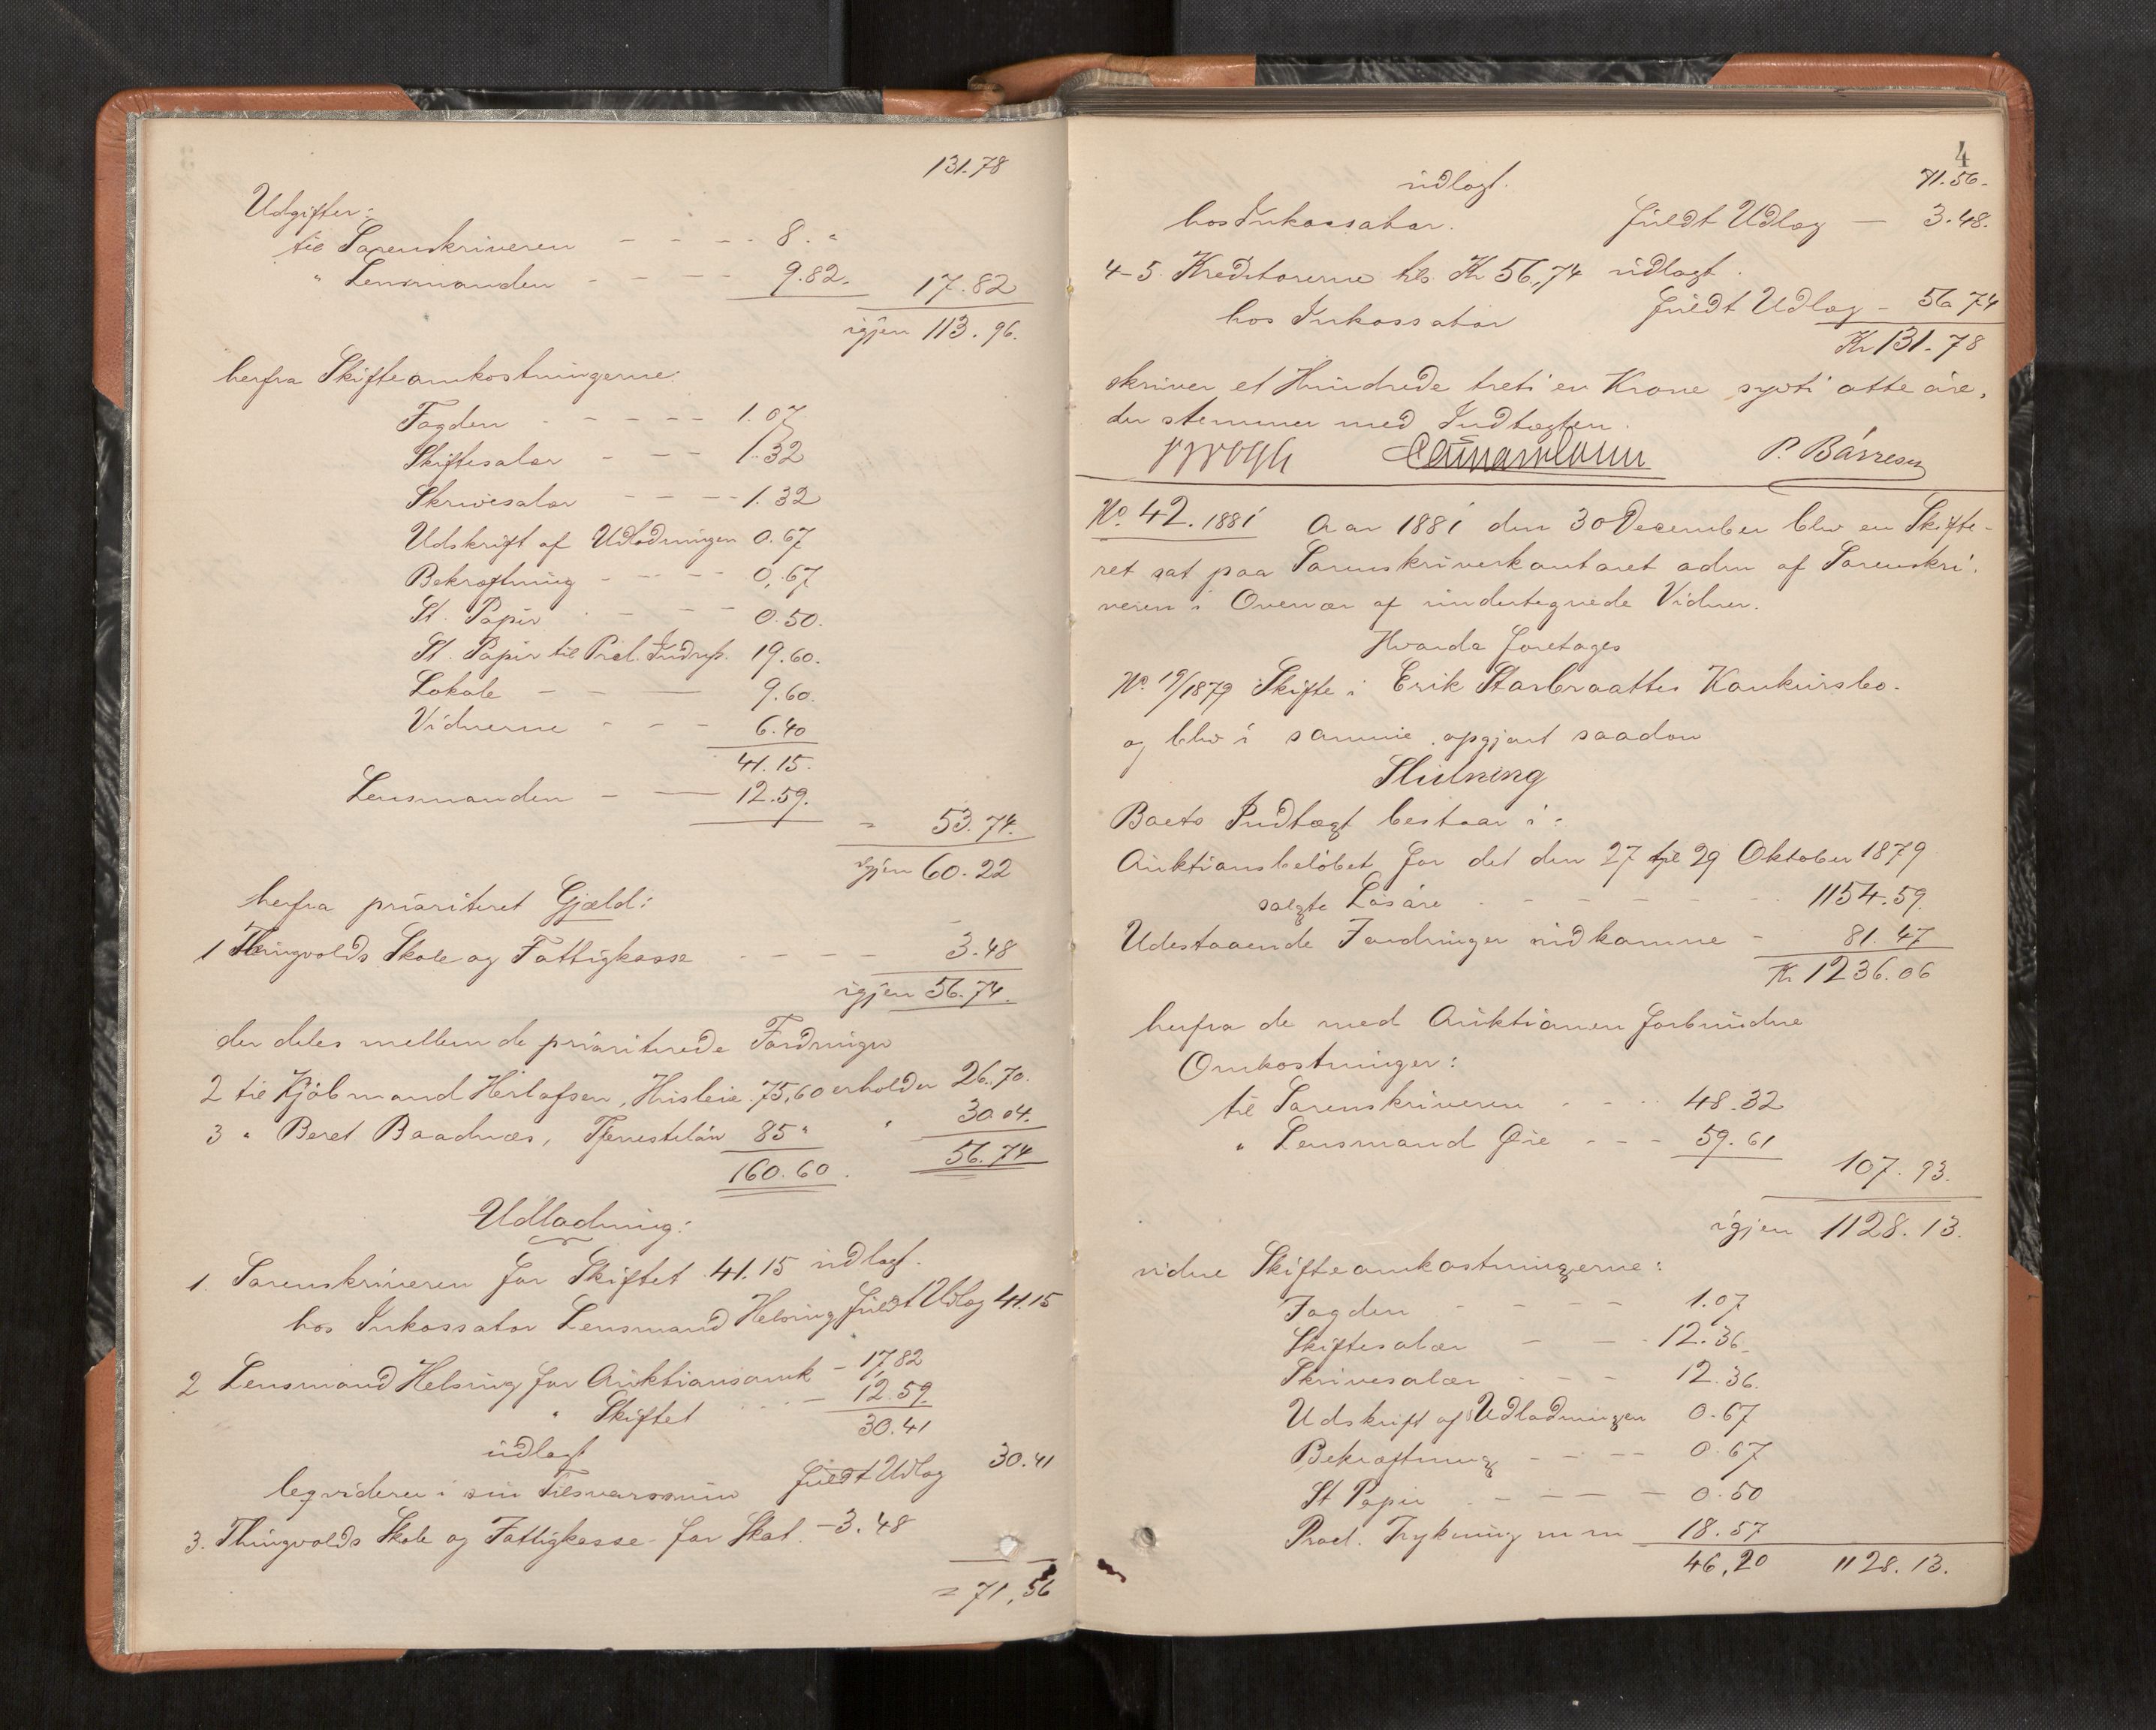 131.78
Udgifter:
til Sorenskriveren - - - - 8. "
" Lensmanden - - - - 9.82. 17.82
igjen 113.96.
herfra Skifteomkostningerne:
Fogden - - - - - 1.07
Skiftesalær - - - 1.32
Skrivesalær - - - - 1.32
Udskrift af Udlodningen 0.67
Bekræftning - - - - 0.67
St. Papir - - - - 0.50.
St. Papir til Procl. Indryk. 19.60.
Lokale - - - 9.60.
Vidnerne - - - 6.40
41.15.
Lensmanden - - 12.59.
= 53.74.
igjen 60.22
herfra prioriteret Gjæld:
1 Thingvolds Skole og Fattigkasse - - - - 3.48
igjen 56.74.
der deles mellem de prioriterede Fordringer
2 til Kjöbmand Herlofsen, Husleie 75,60 erholder 26.70.
3 " Beret Baadnæs, Tjenestelön 85 " " 30.04.
160.60. 56.74
Udlodning:
1. Sorenskriveren for Skiftet 41.15 udlagt.
hos Inkassator Lensmand Helsing fuldt Udlæg 41.15
2 Lensmand Helsing for Auktionsomk - 17,82
" Skiftet - - - 12.59.
30.41
udlagt
leqviderer i sin Tilsvarssum fuldt Udlæg 30.41
3. Thingvolds Skole og Fattigkasse for Skat. - 3.48
= 71,56
4
udlagt. 71.56-
hos Inkassator. fuldt Udlæg - 3.48.
4-5 Kreditorerne tils. Kr 56,74 udlagt.
hos Inkassator fuldt Udlæg - 56 74
Kr 131-78
skriver et Hundrede treti en Krone sytti otte öre,
der stemmer med Indtægten.
P. Bárresen
No. 42. 1881 Aar 1881 den 30 December blev en Skifte-
ret sat paa Sorenskriverkontoret adm af Sorenskri-
veren i Overvær af undertegnede Vidner.
Hvorda foretoges
No. 19/1879 Skifte i Erik Storbraattes Konkursbo.
og blev i samme opgjort saadan
Slutning
Boets Indtægt bestaar i:
Auktionsbelöbet for det den 27 til 29 Oktober 1879
solgte Lösöre - - - - - - - 1154.59.
Udestaaende Fordringer indkomne - 81.47
Kr. 1236.06
herfra de med Auktionen forbundne
Omkostninger:
til Sorenskriveren - - - 48.32
" Lensmand Öie - - - 59.61
107.93.
igjen 1128.13.
vidre Skifteomkostningerne:
Fogden - - - - 1.07
Skiftesalær - - - 12.36.
Skrivesalær - - - 12.36.
Udskrift af Udlodningen 0.67
Bekræftning - - - 0.67
St Papir - - - - 0.50
Procl. Trykning m m 18.57
46,20 1128.13.